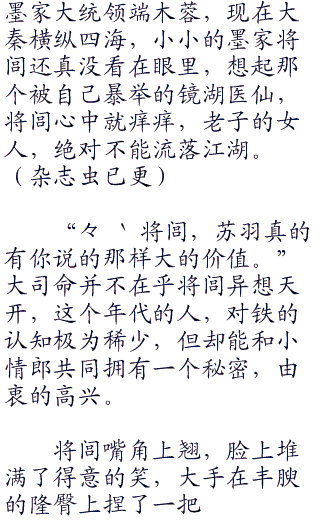 墨家大统领端木蓉，现在大
秦横纵四海，小小的墨家将
闾还真没看在眼里，想起那
个被自己暴举的镜湖医仙，
将闾心中就痒痒，老子的女
人，绝对不能流落江湖。
（杂志虫已更）
“々 丶 将闾，苏羽真的
有你说的那样大的价值。”
大司命并不在乎将闾异想天
开，这个年代的人，对铁的
认知极为稀少，但却能和小
情郎共同拥有一个秘密，由
衷的高兴。
将闾嘴角上翘，脸上堆
满了得意的笑，大手在丰腴
的隆臀上捏了一把